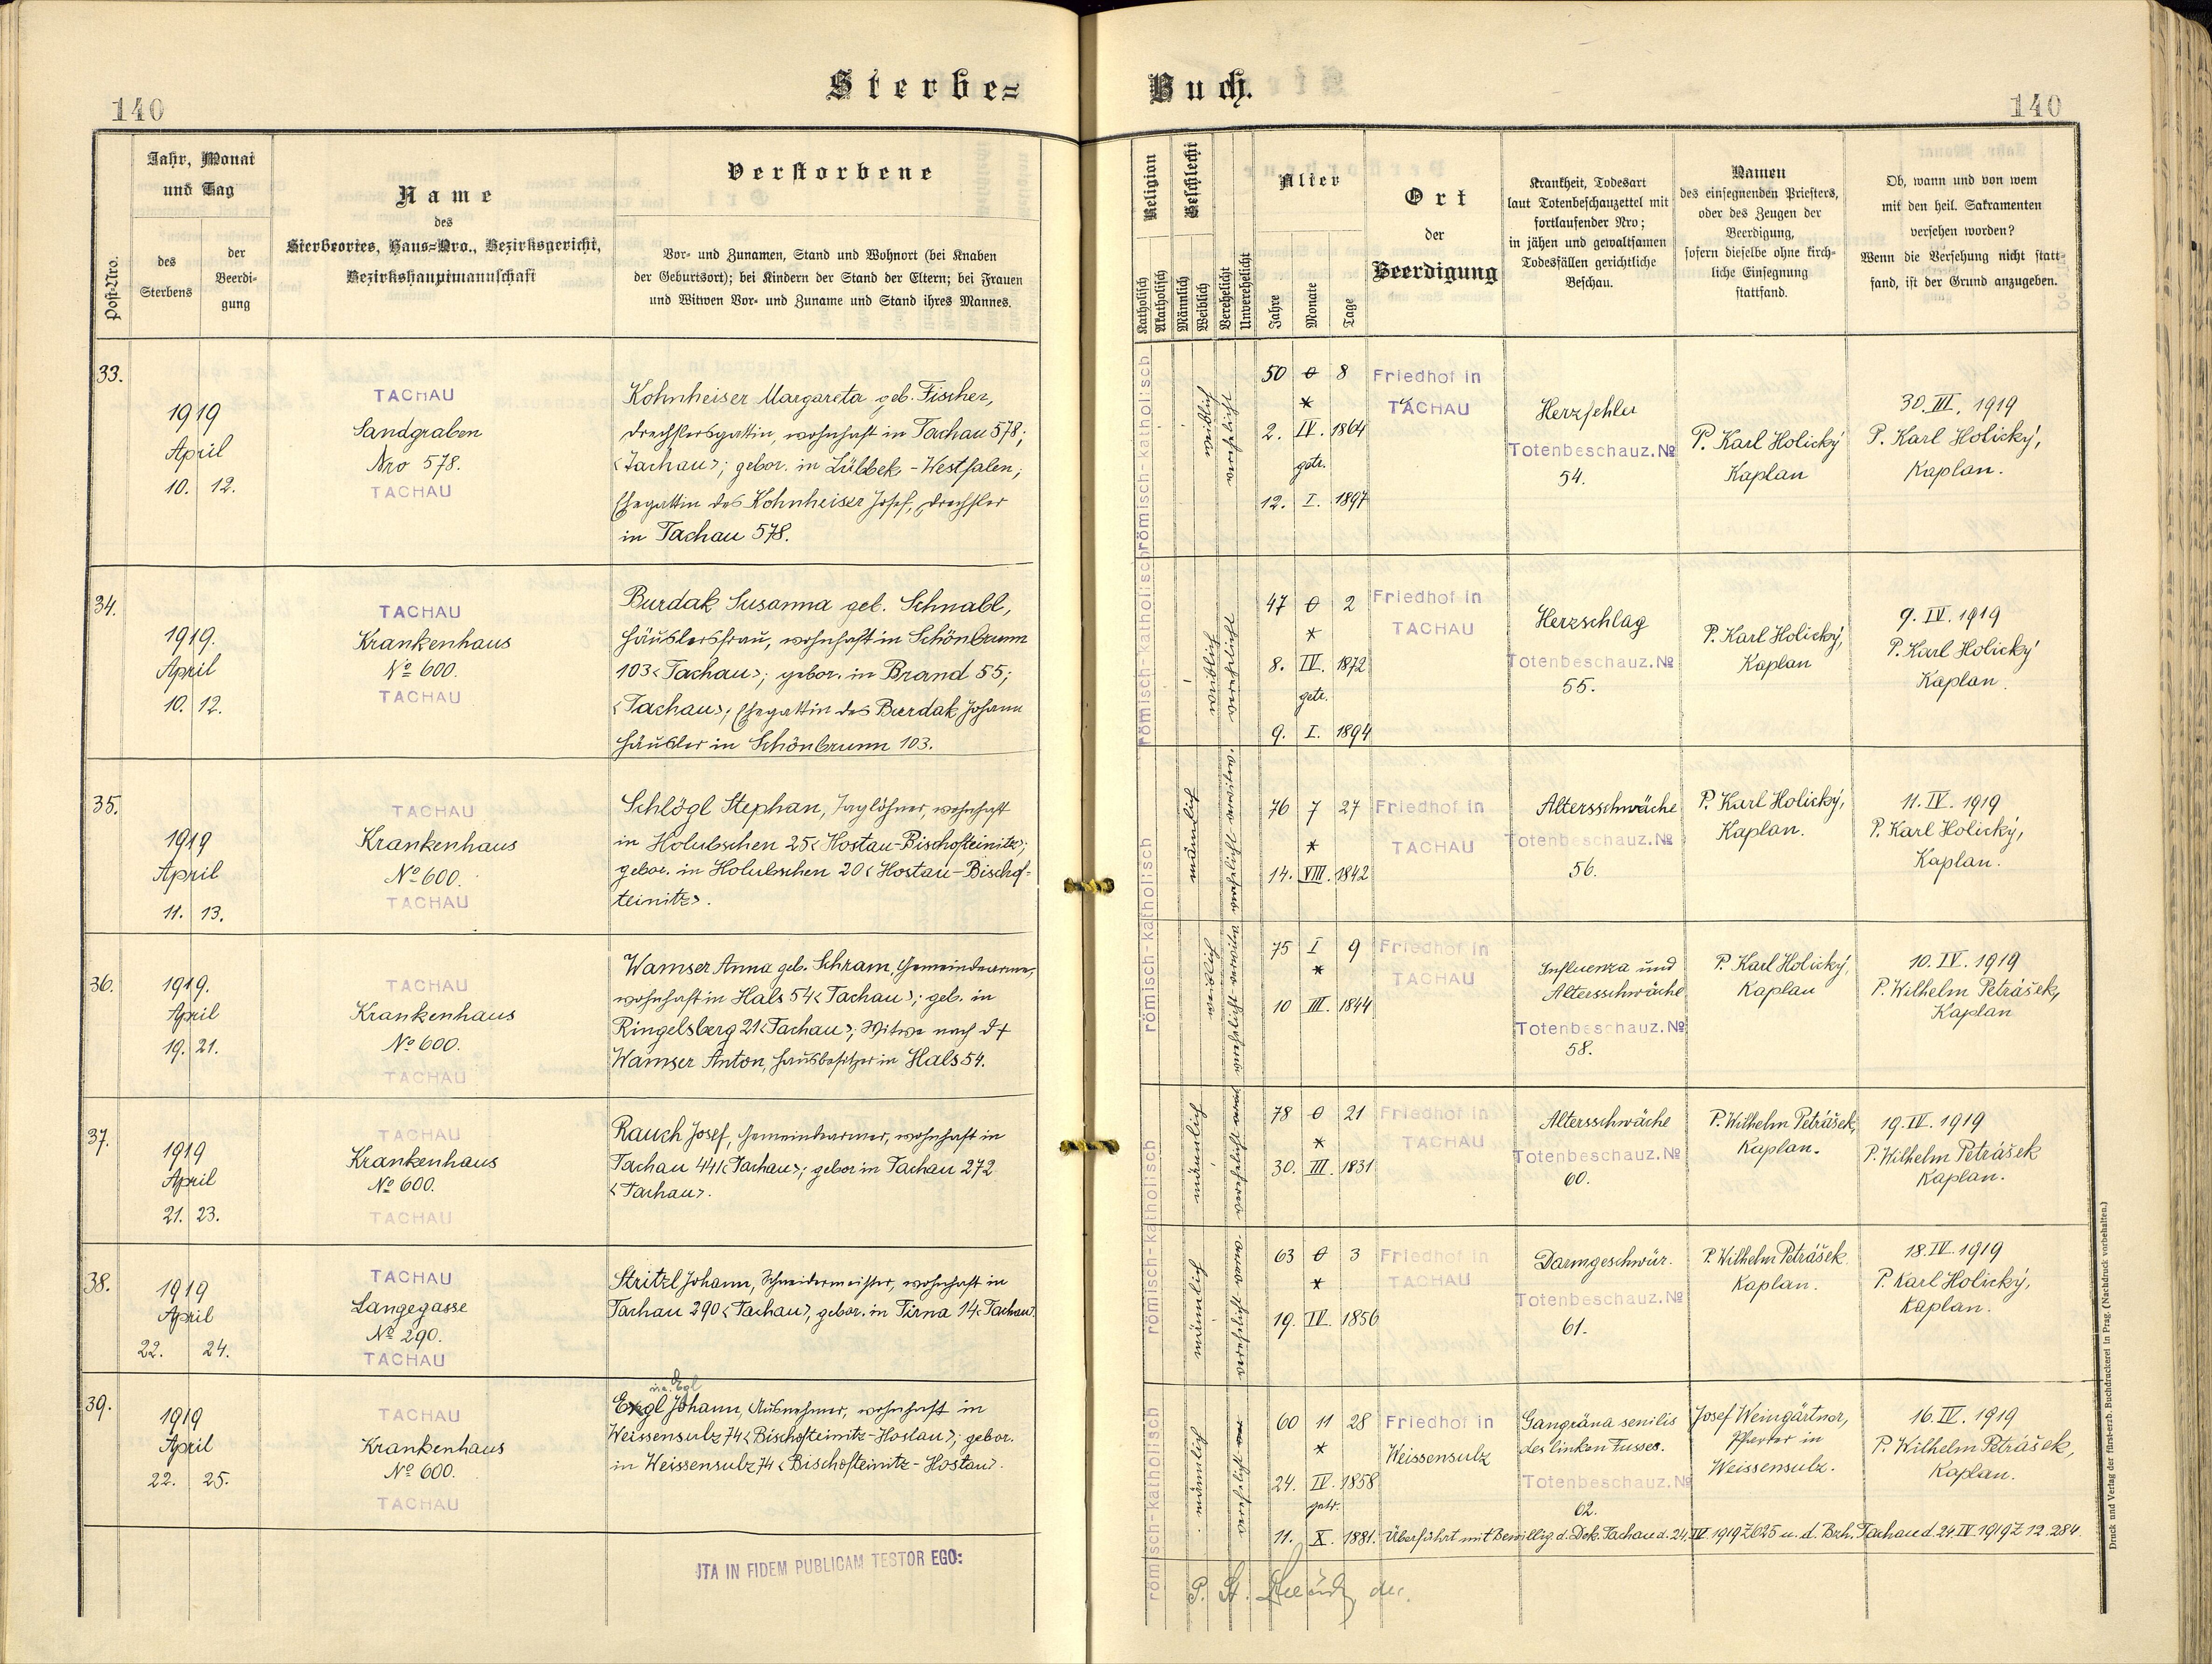 Sterbe=
Buch.
140
140
Post-Nro.
Jahr, Monat
und Tag
des
Sterbens
der
Beerdi-
gung
Name
des
Sterbeortes, Haus-Nro., Bezirksgericht,
Bezirkshauptmannschaft
Verstorbene
Vor- und Zunamen, Stand und Wohnort (bei Knaben
der Geburtsort); bei Kindern der Stand der Eltern; bei Frauen
und Witwen Vor- und Zuname und Stand ihres Mannes.
Religion
Katholisch
Akatholisch
Geschlecht
Männlich
Weiblich
Verehelicht
Unverehelicht
Alter
Jahre
Monate
Tage
Ort
der
Beerdigung
Krankheit, Todesart
laut Totenbeschauzettel mit
fortlaufender Nro;
in jähen und gewaltsamen
Todesfällen gerichtliche
Beschau.
Namen
des einsegnenden Priesters,
oder des Zeugen der
Beerdigung,
sofern dieselbe ohne kirch-
liche Einsegnung
stattfand.
Ob, wann und von wem
mit den heil. Sakramenten
versehen worden?
Wenn die Versehung nicht statt-
fand, ist der Grund anzugeben.
33.
1919
April
10. 12.
TACHAU
Sandgraben
Nro 578.
TACHAU
Kohnheiser Margareta geb. Fischer,
Drechslersgattin, wohnhaft in Tachau 578;
<Tachau>; gebor. in Lübbek-Westfalen;
Ehegattin des Kohnheiser Josef, Drechsler
in Tachau 578.
römisch-katholisch
weiblich
verehelicht
50 0 8
*
2. IV. 1864
getr.
12. I. 1897
Friedhof in
TACHAU
Herzfehler
Totenbeschauz. No
54.
P. Karl Holický
Kaplan
30. III. 1919
P. Karl Holický,
Kaplan.
34.
1919.
April
10. 12.
TACHAU
Krankenhaus
No 600.
TACHAU
Burdak Susanna geb. Schnabl,
Häuslersfrau, wohnhaft in Schönbrunn
103 <Tachau>; gebor. in Brand 55;
<Tachau>; Ehegattin des Burdak Johann
Häusler in Schönbrunn 103.
römisch-katholisch
weiblich
verehelicht
47 0 2
*
8. IV. 1872
getr.
9. I. 1894
Friedhof in
TACHAU
Herzschlag
Totenbeschauz. No
55.
P. Karl Holický,
Kaplan
9. IV. 1919
P. Karl Holický
Kaplan.
35.
1919
April
11. 13.
TACHAU
Krankenhaus
No 600.
TACHAU
Schlögl Stephan, Taglöhner, wohnhaft
in Holubschen 25 <Hostau-Bischofteinitz>;
gebor. in Holubschen 20 <Hostau-Bischof-
teinitz>.
römisch-katholisch
männlich
verehelicht
76 7 27
*
14. VIII. 1842
Friedhof in
TACHAU
Altersschwäche
Totenbeschauz. No
56.
P. Karl Holický,
Kaplan.
11. IV. 1919
P. Karl Holický,
Kaplan.
36.
1919.
April
19. 21.
TACHAU
Krankenhaus
No 600.
TACHAU
Wamser Anna geb. Schram, Gemeindearme,
wohnhaft in Hals 54 <Tachau>; geb. in
Ringelsberg 21 <Tachau>; Witwe nach d. +
Wamser Anton, Hausbesitzer in Hals 54.
weiblich
verehelicht
75 I 9
*
10 III. 1844
Friedhof in
TACHAU
Influenza und
Altersschwäche
Totenbeschauz. No
58.
P. Karl Holický,
Kaplan
10. IV. 1919
P. Wilhelm Petrášek,
Kaplan
37.
1919
April
21. 23.
TACHAU
Krankenhaus
No 600.
TACHAU
Rauch Josef, Gemeindearmer, wohnhaft in
Tachau 441 <Tachau>; gebor in Tachau 272
<Tachau>.
römisch-katholisch
männlich
verehelicht
78 0 21
*
30. III. 1831
Friedhof in
TACHAU
Altersschwäche
Totenbeschauz. No
60.
P. Wilhelm Petrášek,
Kaplan.
19. IV. 1919
P. Wilhelm Petrášek
Kaplan.
38.
1919
April
22. 24.
TACHAU
Langegasse
No 290.
TACHAU
Stritzl Johann, Schneidermeister, wohnhaft in
Tachau 290 <Tachau>, gebor. in Tirna 14 <Tachau>
männlich
verehelicht
63 0 3
*
19. IV. 1856
Friedhof in
TACHAU
Darmgeschwür.
Totenbeschauz. No
61.
P. Wilhelm Petrášek
Kaplan.
18. IV. 1919
P. Karl Holický,
Kaplan.
39.
1919
April
22. 25.
TACHAU
Krankenhaus
No 600.
TACHAU
Johann, Ausnehmer, wohnhaft in
Weissensulz 74 <Bischofteinitz-Hostau>; gebor.
in Weissensulz 74 <Bischofteinitz-Hostau>.
römisch-katholisch
männlich
verehelicht
60 11 28
*
24. IV. 1858
getr.
11. X. 1881.
Friedhof in
Weissensulz
Gangräna senilis
des linken Fusses.
Totenbeschauz. No
62.
Josef Weingärtner,
Pfarrer in
Weissensulz.
16. IV. 1919
P. Wilhelm Petrášek,
Kaplan.
Überführt mit Bewillig. d. Dek. Tachau d. 24. IV. 1919 Z 625 u. d. Bzh. Tachau d. 24. IV 1919 Z 12.284.
ITA IN FIDEM PUBLICAM TESTOR EGO:
Druck und Verlag der fürst-erzb. Buchdruckerei in Prag. (Nachdruck vorbehalten.)